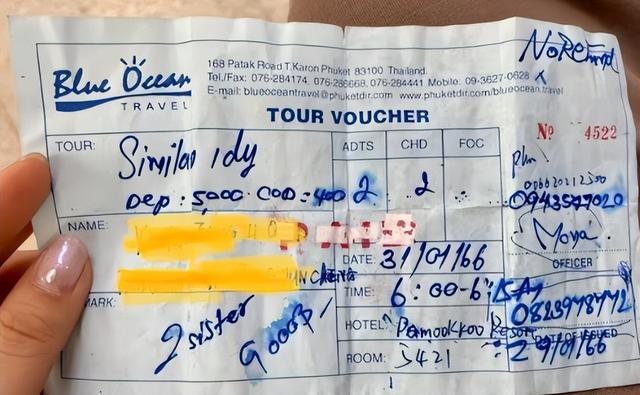 NoREfund
Blue Ocean
TRAVEL
168 Patak Road T.Karon Phuket 83100 Thailand.
Tel./Fax: 076-284174, 076-286668, 076-284441 Mobile: 09-3627-0628
E-mail: blueoceantravel@phuketdir.com www.phuketdir.com/blueocean.travel
TOUR VOUCHER
Nº 4522
TOUR: Similan 1dy
Dep : 5,000 COD = 400
ADTS CHD FOC
2 2
0943577020
Mova
OFFICER
NAME:
DATE: 31/01/66
TIME: 6:00-6:
0823978772
MARK: 2 sister
HOTEL: Resort
DATE OF ISSUED
29/01/66
ROOM: 5421